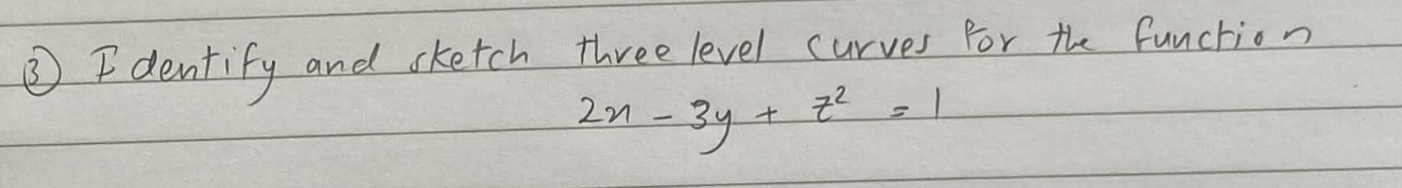 ③ Identify and sketch three level curves for the function
2x - 3y + z² = 1